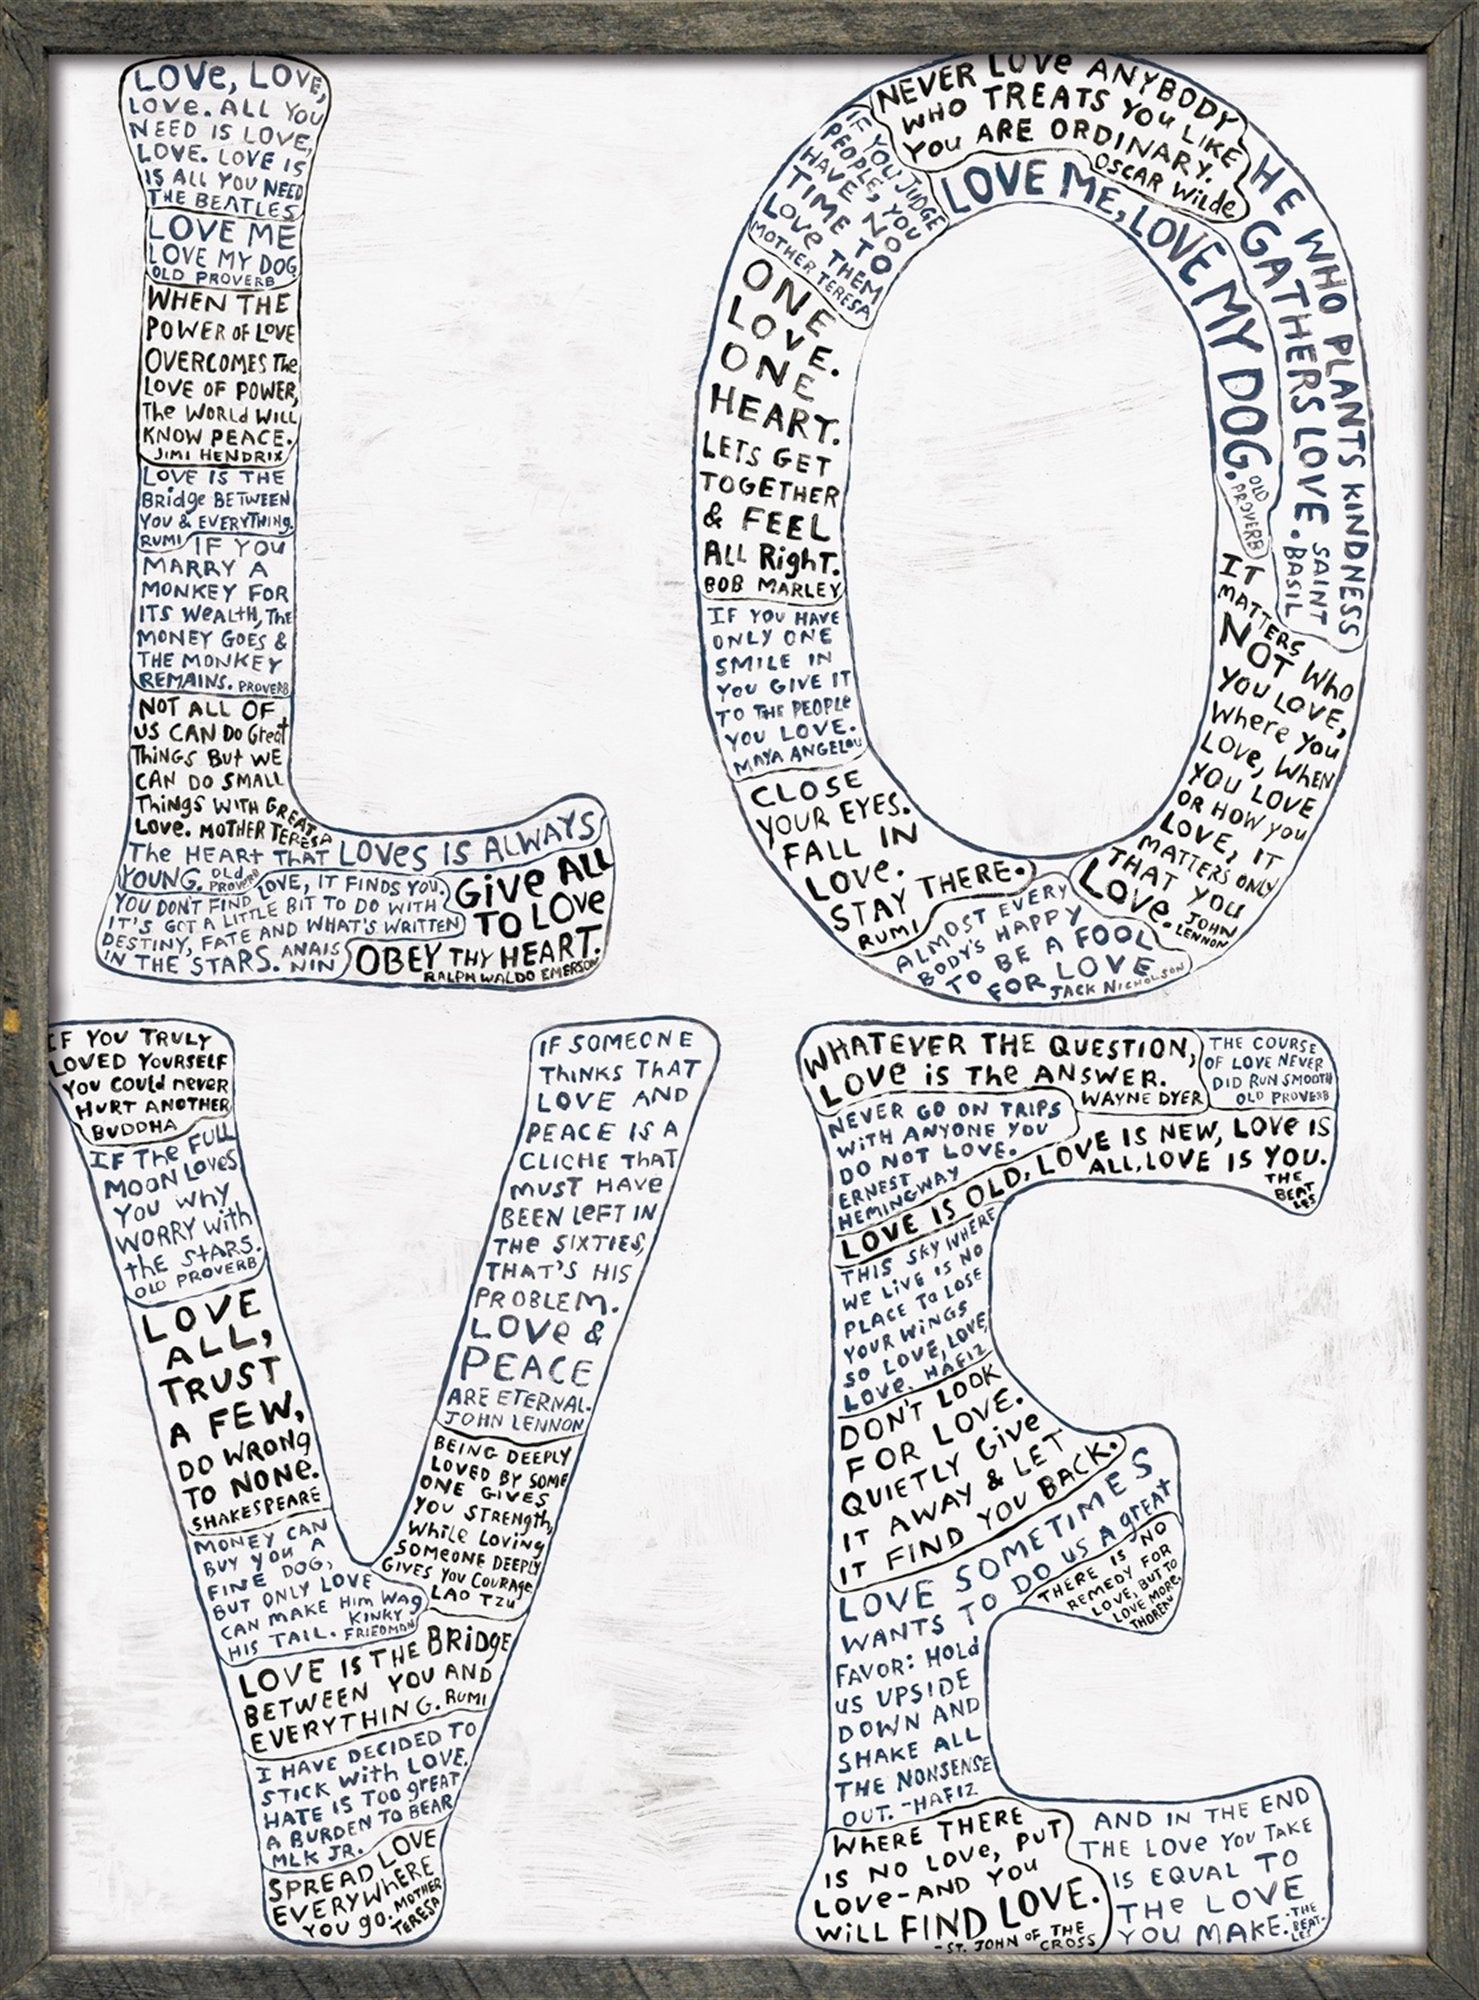 LOVe, LOVE,
LOVe. ALL YOU
NEED IS LOVE,
LOVE. LOVE IS
IS ALL YOU NEED
THE BEATLES
LOVE ME
LOVE MY DOG
OLD PROVERB
WHEN THE
POWER OF LOVE
OVERCOMES The
LOVE OF POWER,
The WORLd WILL
KNOW PEACE.
JIMI HENDRIX
LOVE IS THE
Bridge BETWEEN
YOU & EVERYTHING.
RUMI
IF YOU
MARRY A
MONKEY FOR
ITS WeALtH, The
MONEY GOES &
THE MONKEY
REMAINS. PROVERB
NOT ALL OF
US CAN DO Great
THINGS But WE
CAN DO SMALL
THINGS WITH GREAT
LOVe. MOTHER TERESA
The HEARt THAT LOVES IS ALWAYS
YOUNG. OLd
PROVERB
LOVE, IT FINDS YOU.
YOU DON'T FIND
IT'S GOT A LITTLE BIT TO DO WITH
DESTINY, FATE AND WHAT'S WRITTEN
IN THE STARS. ANAIS
NIN
GiVe ALL
TO LOVe
OBEY THY HEART.
RALPH WALDO EMERSON
NEVER LOVe ANYBODY
WHO TREATS YOU LIKE
YOU ARE ORDINARY.
OSCAR WILde
IF YOU JUDGE
PEOPLE, YOU
HAVE NO
TIME TO
LOVe THEM
MOTHER TERESA
LOVE ME, LOVE MY DOG.
OLD
PROVERB
HE WHO PLANTS KINDNESS
GATHERS LOVE. SAINT
BASIL
ONE
LOVE.
ONE
HEART.
LETS GET
TOGETHER
& FEEL
ALL RigHT.
BOB MARLEY
IF YOU HAVE
ONLY ONE
SMILE IN
YOU GIVE IT
TO THE PEOPLe
YOU LOVE.
MAYA ANGELOU
CLOSE
YOUR EYES.
FALL IN
LOVe.
STAY THERE.
RUMI
IT
MATTERS
NOT WHO
YOU LOVE,
WHere YOU
LOVe, WHEN
YOU LOVE
OR HOW YOU
LOVE, IT
MATTERS ONLY
THAT YOU
LOVe. JOHN
LENNON
ALMOST EVERY
BODY'S HAPPY
TO BE A FOOL
FOR LOVE
JACK NICHOLSON
IF YOU TRULY
LOVED YOURSELF
YOU COULd never
HURT ANOTHER
BUDDHA
IF The FULL
MOON LOVeS
YOU WHY
WORRY With
the STARS.
OLD PROVERB
LOVE
ALL,
TRUST
A FEW,
DO WRONG
TO NONE.
SHAKESPEARE
MONEY CAN
BUY YOU A
FINE DOG,
BUT ONLY LOVE
CAN MAKE HIM WAG
HIS TAIL. KINKY
FRIEDMAN
IF SOMEONE
THINKS THAT
LOVE AND
PEACE IS A
CLICHE THAT
MUST HAVe
BEEN LeFT IN
THe SIXTIES,
THAT'S HIS
PROBLEM.
LOVe &
PEACE
ARE ETERNAL.
JOHN LENNON
BEING DEEPLY
LOVED BY SOME
ONE GIVES
YOU STRENGTH,
WHILe LOVING
SOMeONE DEEPLY
GIVES YOU COURAGe
LAO TZU
LOVE IS THE BRIDGE
BETWEEN YOU AND
EVERYTHING. RUMI
I HAVE DECIDED TO
STICK With LOVE.
HATE IS TOO GREAT
A BURDEN TO BEAR
MLK JR.
SPREAD LOVE
EVERYWHERE
YOU GO. MOTHER
TERESA
WHATEVER THE QUESTION,
LOVe is The ANSWER.
WAYNE DYER
THE COURSE
OF LOVE NEVER
DID RUN SMOOTH
OLD PROVERB
NEVER GO ON TRIPS
WiTH ANYONE YOU
DO NOT LOVE.
ERNEST
HEMINGWAY
LOVE IS OLD, LOVE IS NEW, LOVe IS
ALL, LOVE IS YOU.
THE
BEAT
LES
THIS SKY WHERE
WE LIVe IS NO
PLACE To LOSE
YOUR WiNGS
SO LOVE, LOVE,
LOVE. HAFIZ
DON'T LOOK
FOR LOVE.
QUIETLY GiVe
IT AWAY & LET
IT FIND YOU BACK.
LOVE SOMETIMES
WANTS TO DO US A GREAt
FAVOR: HOLd
US UPSIDE
DOWN AND
SHAKE ALL
THE NONSENSE
OUT. -HAFIZ
THERE IS NO
REMEDY FOR
LOVE, BUT TO
LOVE MORE.
THOREAU
WHERE THERE
IS NO LOVe, PUT
LOVe-AND YOU
WiLL FIND LOVE.
-ST. JOHN OF THE
CROSS
AND IN THE END
THE LOVe YOU TAKE
IS EQUAL TO
THe LOVE
YOU MAKE. -THE
BEAT-
LES